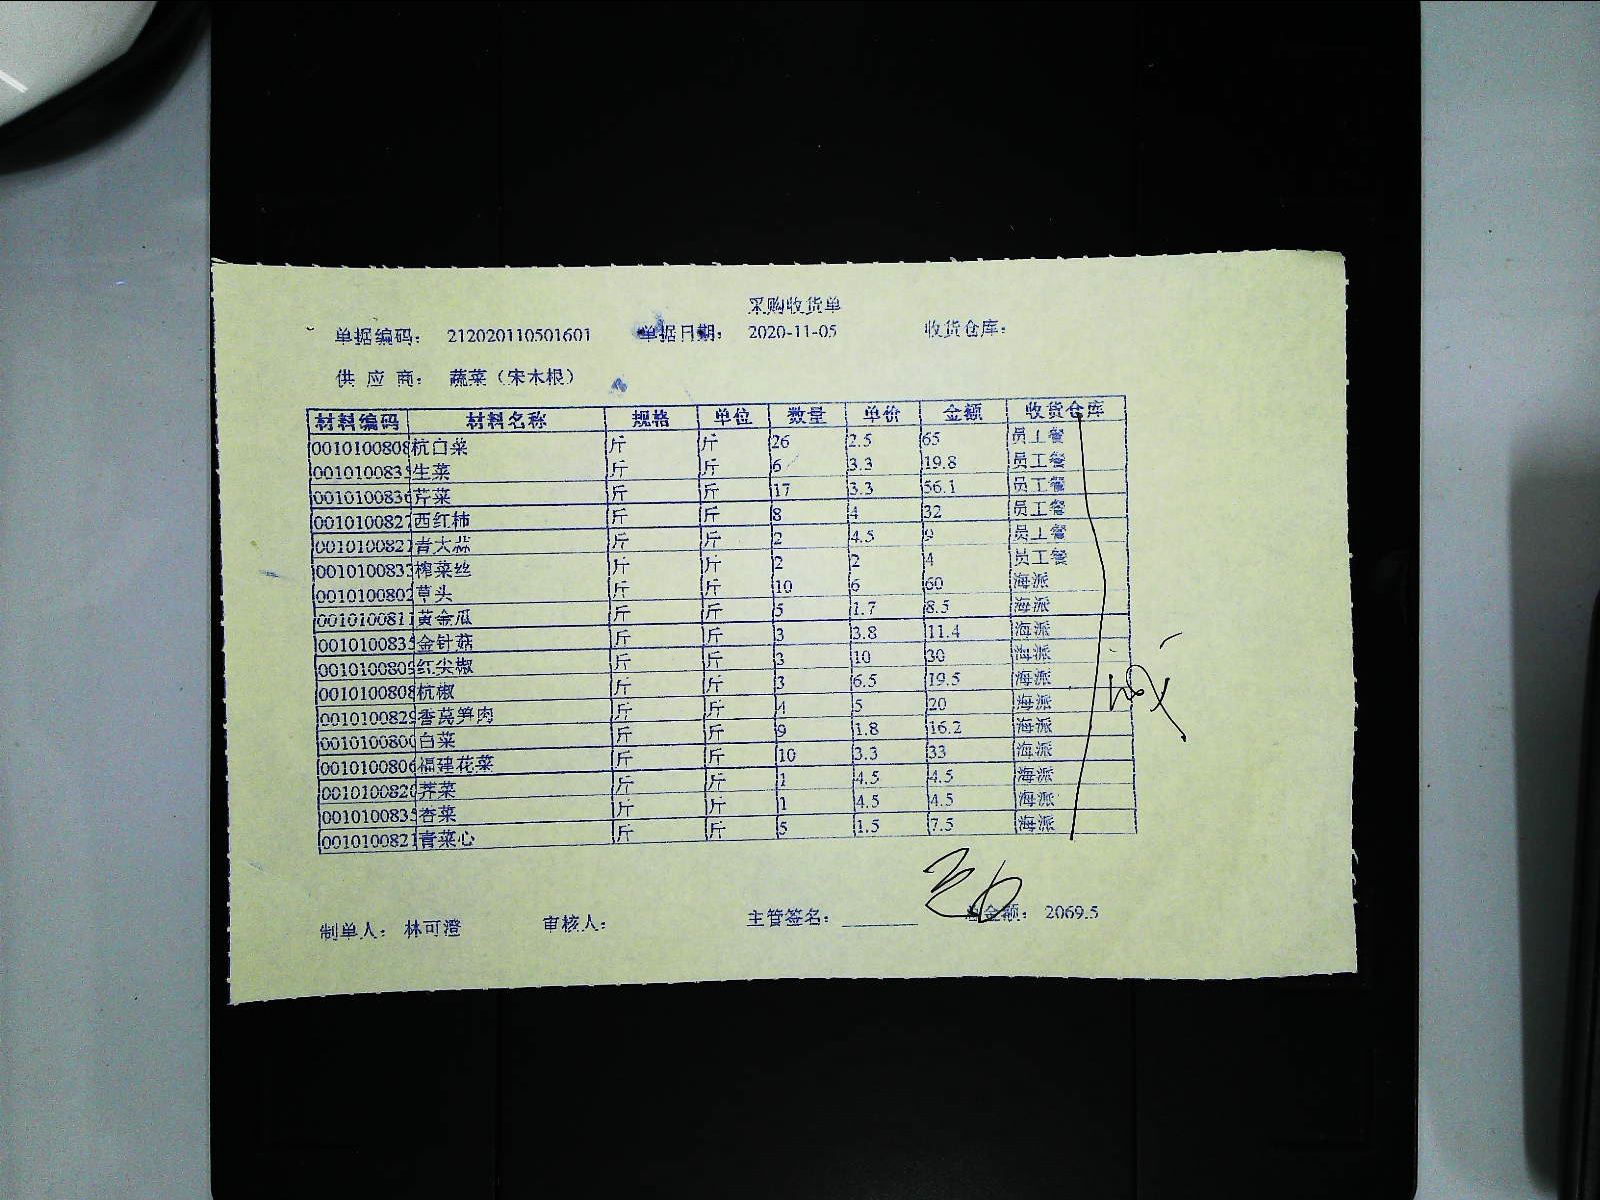 采购收货单
单据编码： 212020110501601 单据日期： 2020-11-05 收货仓库：
供 应 商： 蔬菜（宋木根）
材料编码 材料名称 规格 单位 数量 单价 金额 收货仓库
0010100808 杭白菜 斤 斤 26 2.5 65 员工餐
001010083 生菜 斤 斤 6 3.3 19.8 员工餐
001010083 芹菜 斤 斤 17 3.3 56.1 员工餐
001010082 西红柿 斤 斤 8 4 32 员工餐
001010082 青大蒜 斤 斤 2 4.5 9 员工餐
001010083 榨菜丝 斤 斤 2 2 4 员工餐
001010080 草头 斤 斤 10 6 60 海派
001010081 黄金瓜 斤 斤 5 1.7 8.5 海派
001010083 金针菇 斤 斤 3 3.8 11.4 海派
001010080 红尖椒 斤 斤 3 10 30 海派
0010100808 杭椒 斤 斤 3 6.5 19.5 海派
001010082 香莴笋肉 斤 斤 4 5 20 海派
001010080 白菜 斤 斤 9 1.8 16.2 海派
001010080 福建花菜 斤 斤 10 3.3 33 海派
001010082 荠菜 斤 斤 1 4.5 4.5 海派
001010083 香菜 斤 斤 1 4.5 4.5 海派
001010082 青菜心 斤 斤 5 1.5 7.5 海派
制单人： 林可澄 审核人： 主管签名： 总金额： 2069.5